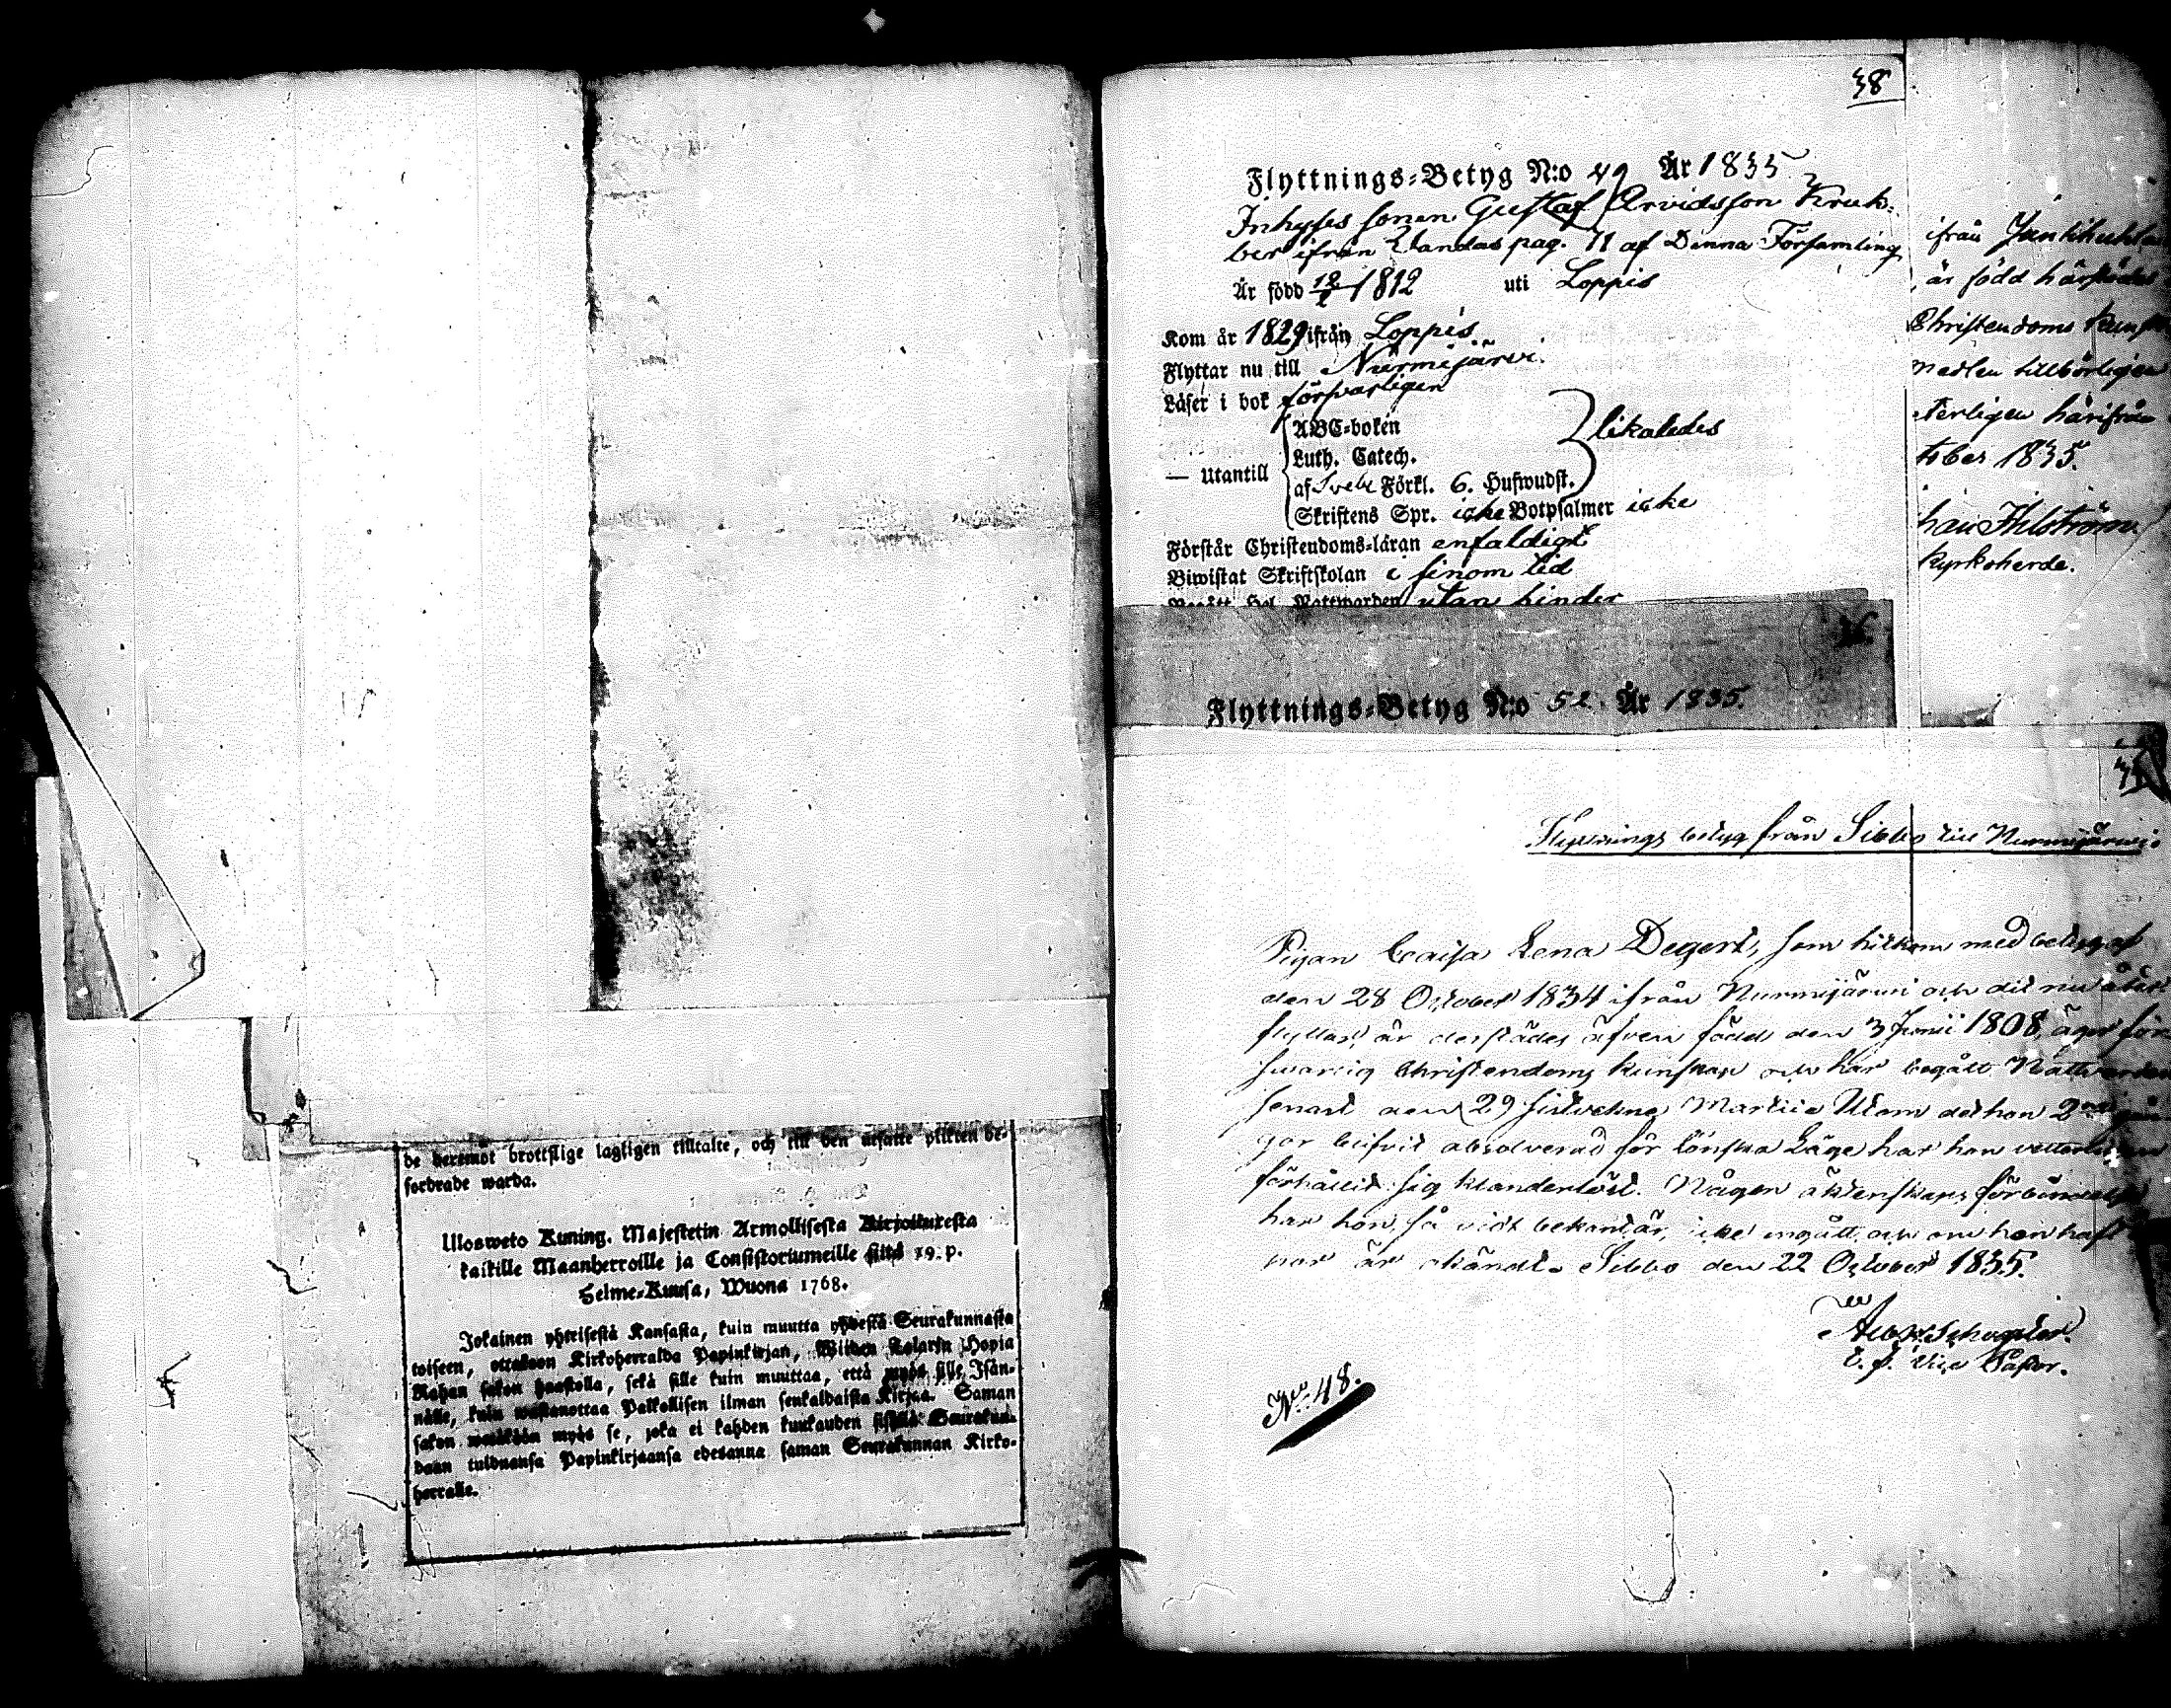 de deremot brottslige lagligen tilltalte, och till den utsatte plikten be-
fordrade warda.
Ulosweto Kuning. Majestetin Armollisesta Kirjoituxesta
kaikille Maanherroille ja Consistoriumeille siitä 19. p.
Helme-Kuusa, Wuona 1768.
Jokainen yhteisestä Kansasta, kuin muutta yhdestä Seurakunnasta
toiseen, ottakoon Kirkoherralda Papinkirjan, Wiiden Kolarin Hopia
Rahan sakon haastolla, sekä sille kuin muuttaa, että myös sille Isän-
nälle, kuin wastanottaa Palkollisen ilman senkaldaista Kirjaa. Saman
sakon wetäköön myös se, joka ei kahden kuukauden sisällä Seurakun-
daan tulduansa Papinkirjaansa edesanna saman Seurakunnan Kirko-
herralle.
38
Flyttnings-Betyg N:o 49 År 1835
Inhyses sonen Gustaf Arvidsson Kruk-
ber ifrån Vandas pag. 11 af Denna Församling
Är född 12/2 1812 uti Loppis
Kom år 1829 ifrån Loppis
Flyttar nu till Nurmijärvi.
Läser i bok försvarligen
— Utantill
ABC-boken
Luth. Catech.
af Sveb Förkl. 6. Hufwudst.
likaledes
Skriftens Spr. icke Botpsalmer icke
Förstår Christendoms-läran enfaldigt
Biwistat Skriftskolan i sinom tid
Begått Hel. Nattwarden utan hinder
ifrån Jankikukla
är född härstädes
Christendoms kunsk
medlen tillbörligen
terligen härifrån
tober 1835.
han Ahlström
Kyrkoherde.
36.
Flyttnings-Betyg N:o 52. År 1835.
Flyttnings betyg från Sibbo till Nurmijärwi.
Pigan Caisa Lena Degert, som hitkom med betyg af
den 28 October 1834 ifrån Nurmijärwi och dit nu åter
flyttar, är derstädes äfven född den 3 Junii 1808, äger för
swarlig Christendoms kunskap och har begått Nattvarden
senast den 29 sistvekne Martii. Utom det hon 2ne gån
gor blifvit absolverad för lönska Läge har hon vetterligen
förhållit sig klanderlöst. Någon äktenskaps förbindelse
har hon, så vidt bekant är, icke ingått, och om hon haft
por är okändt. Sibbo den 22 October 1835.
v. p. Vice Pastor.
No: 48.